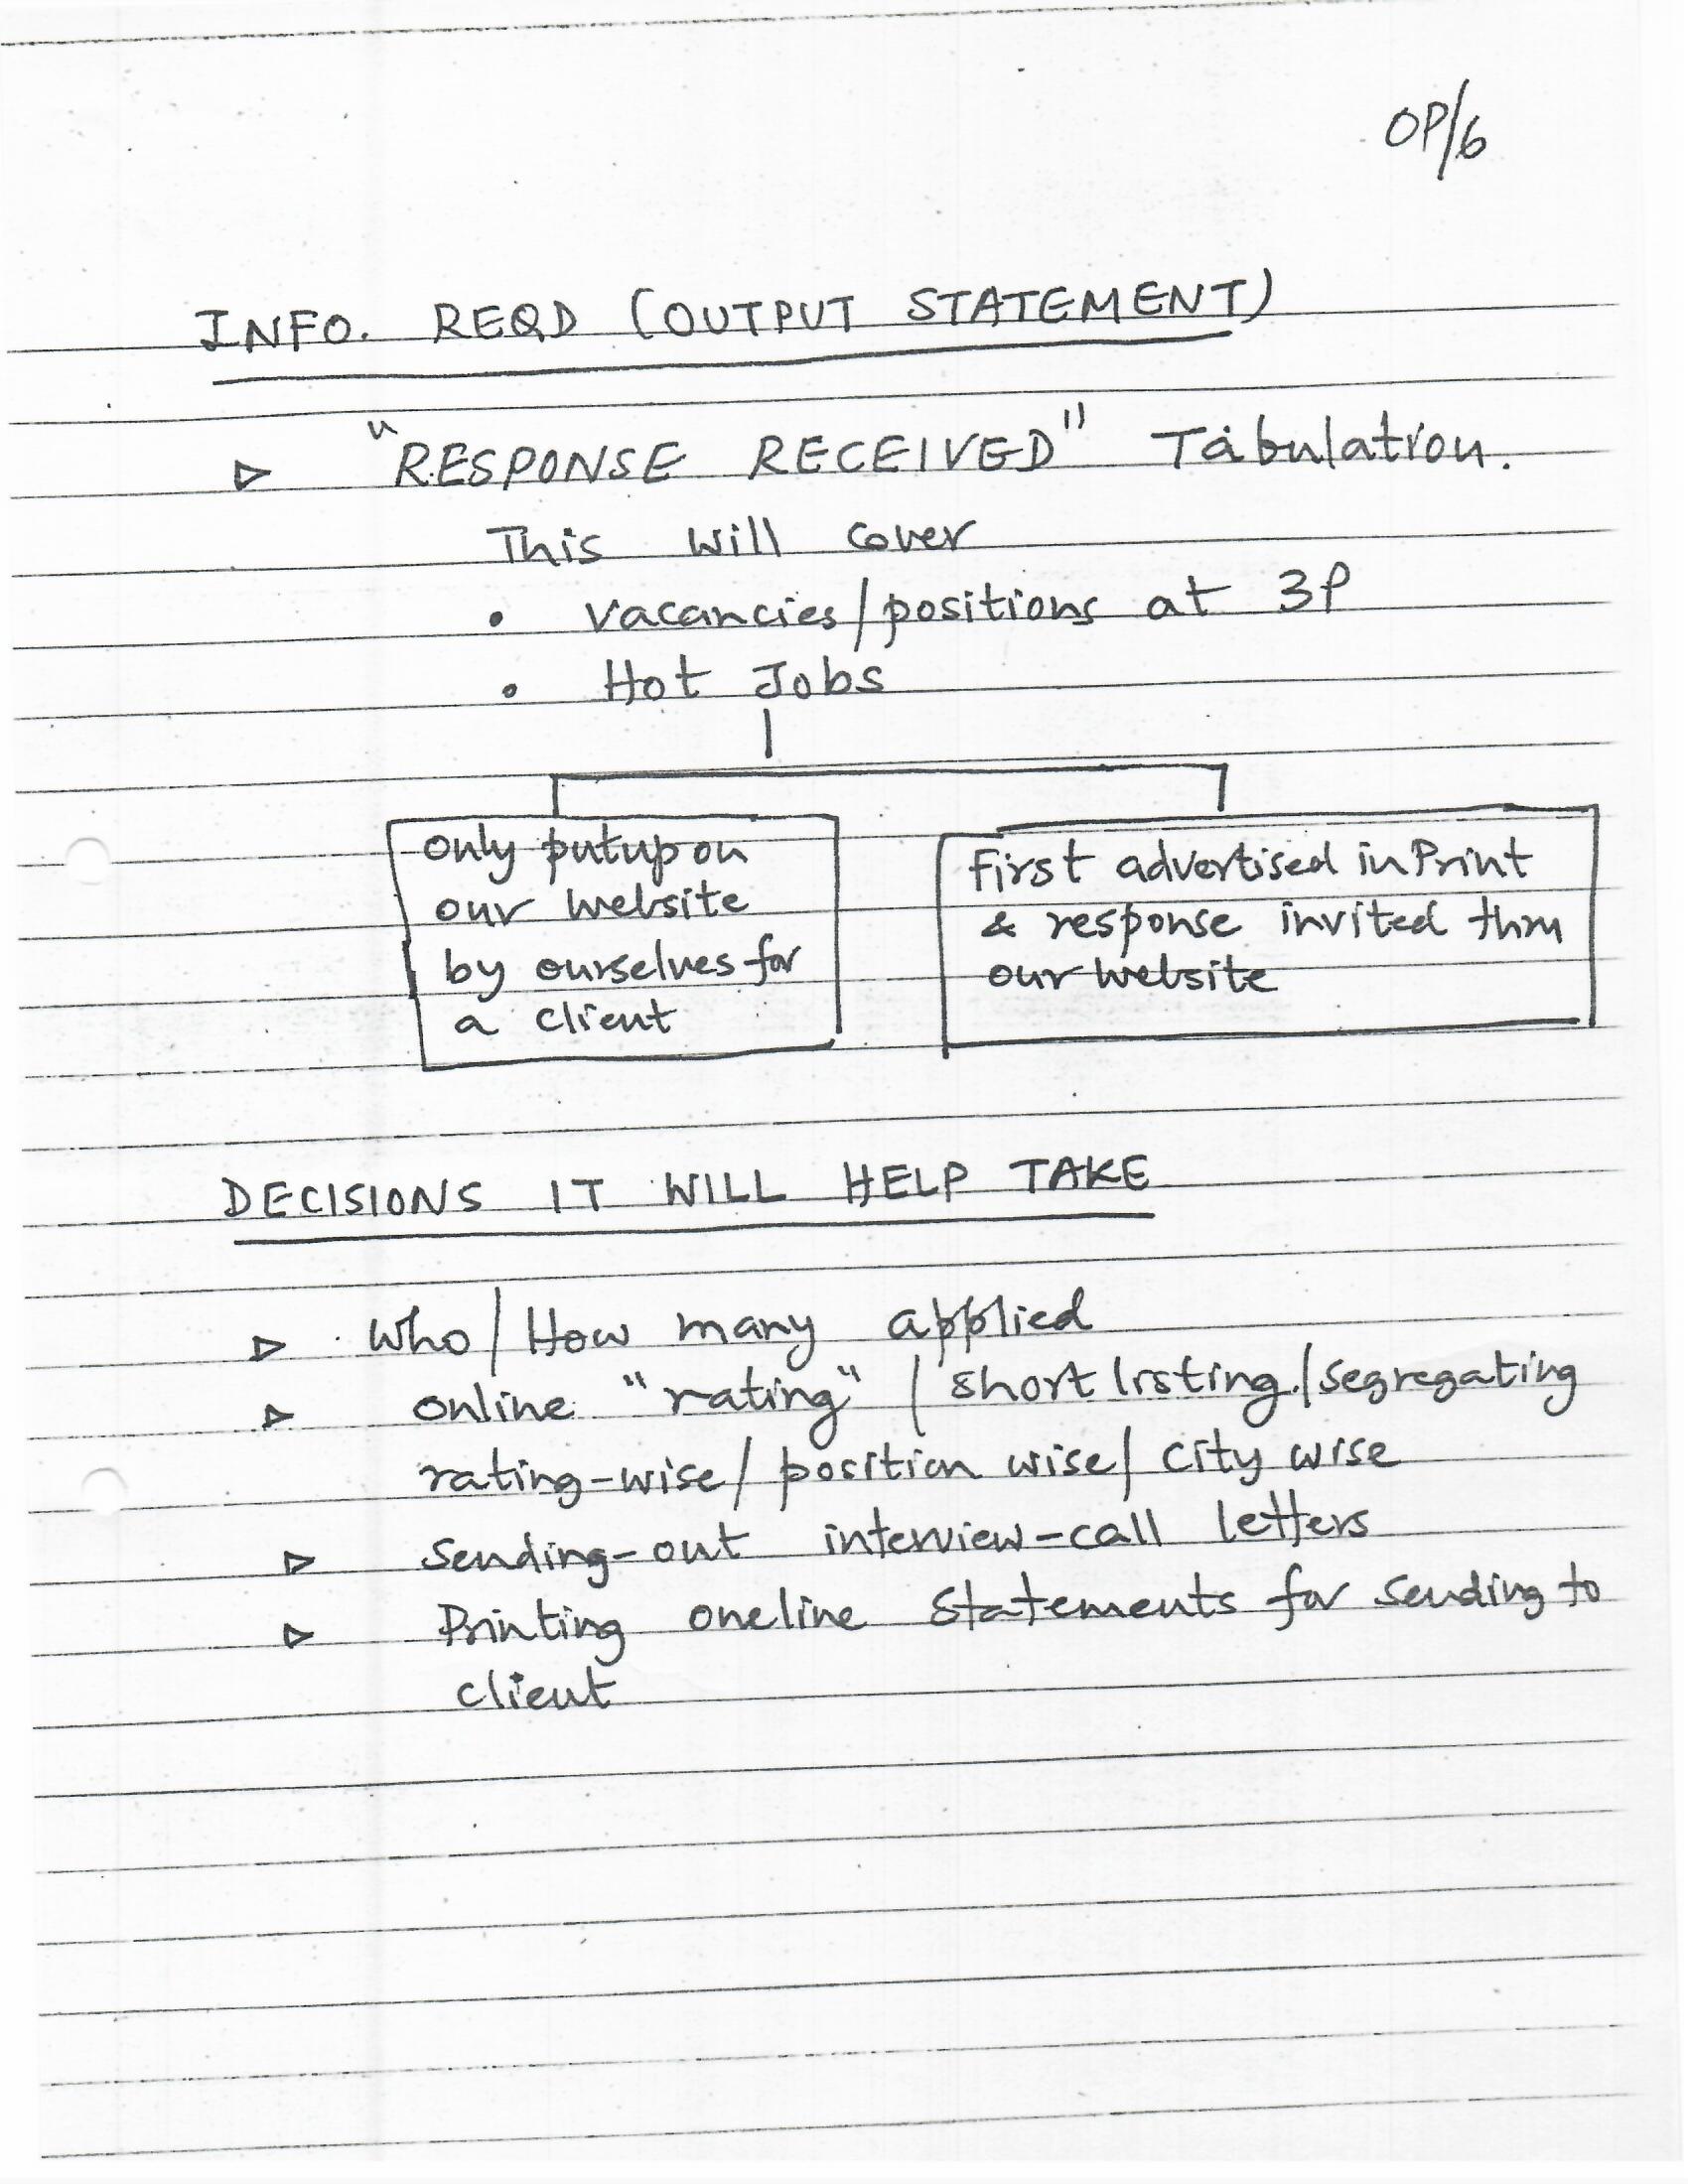 OP/6
INFO. REQD (OUTPUT STATEMENT)
▷ "RESPONSE RECEIVED" Tabulation.
This will cover
• vacancies/positions at 3P
• Hot Jobs
only putup on
our website
by ourselves for
a client
First advertised in Print
& response invited thru
our website
DECISIONS IT WILL HELP TAKE
▷ Who/How many applied
▷ online "rating" / short listing./segregating
rating-wise/position wise/ city wise
▷ Sending-out interview-call letters
▷ Printing oneline statements for sending to
client